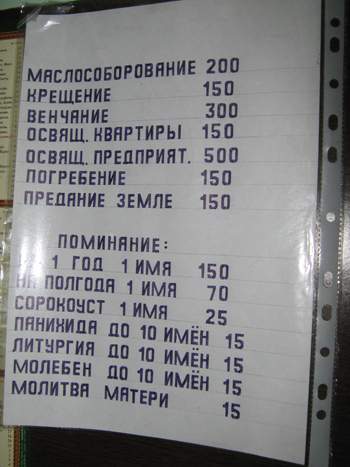 МАСЛОСОБОРОВАНИЕ 200
КРЕЩЕНИЕ 150
ВЕНЧАНИЕ 300
ОСВЯЩ. КВАРТИРЫ 150
ОСВЯЩ. ПРЕДПРИЯТ. 500
ПОГРЕБЕНИЕ 150
ПРЕДАНИЕ ЗЕМЛЕ 150
ПОМИНАНИЕ:
1 ГОД 1 ИМЯ 150
НА ПОЛГОДА 1 ИМЯ 70
СОРОКОУСТ 1 ИМЯ 25
ПАНИХИДА ДО 10 ИМЁН 15
ЛИТУРГИЯ ДО 10 ИМЁН 15
МОЛЕБЕН ДО 10 ИМЁН 15
МОЛИТВА МАТЕРИ 15